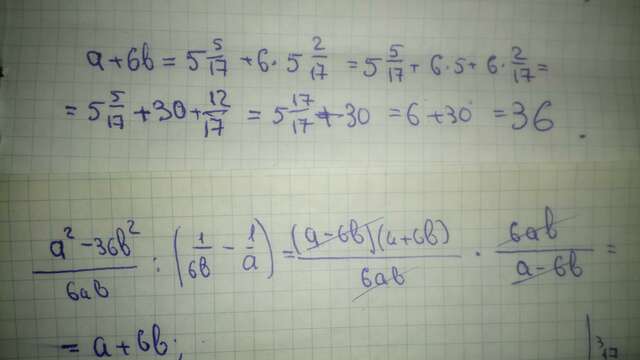 a+6b = 5 5/17 + 6 · 5 2/17 = 5 5/17 + 6·5 + 6·2/17 =
= 5 5/17 + 30 + 12/17 = 5 17/17 + 30 = 6 + 30 = 36.
(a² - 36b²)/(6ab) : (1/(6b) - 1/a) = ((a-6b)(a+6b))/(6ab) · (6ab)/(a-6b) =
= a + 6b;